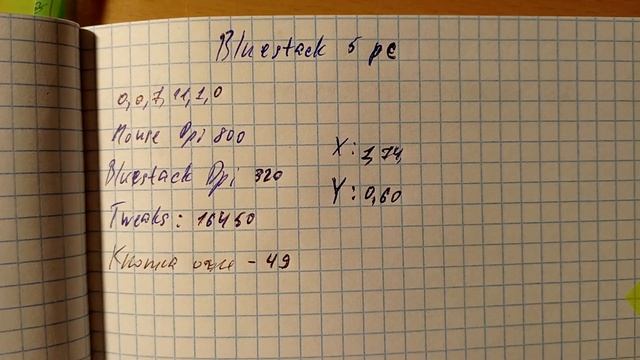 Bluestack 5 pc
0,0,7,11,1,0
Mouse Dpi 800
X: 1,74
Bluestack Dpi 320
Y: 0,60
Tweaks: 16450
Кнопка огня - 49